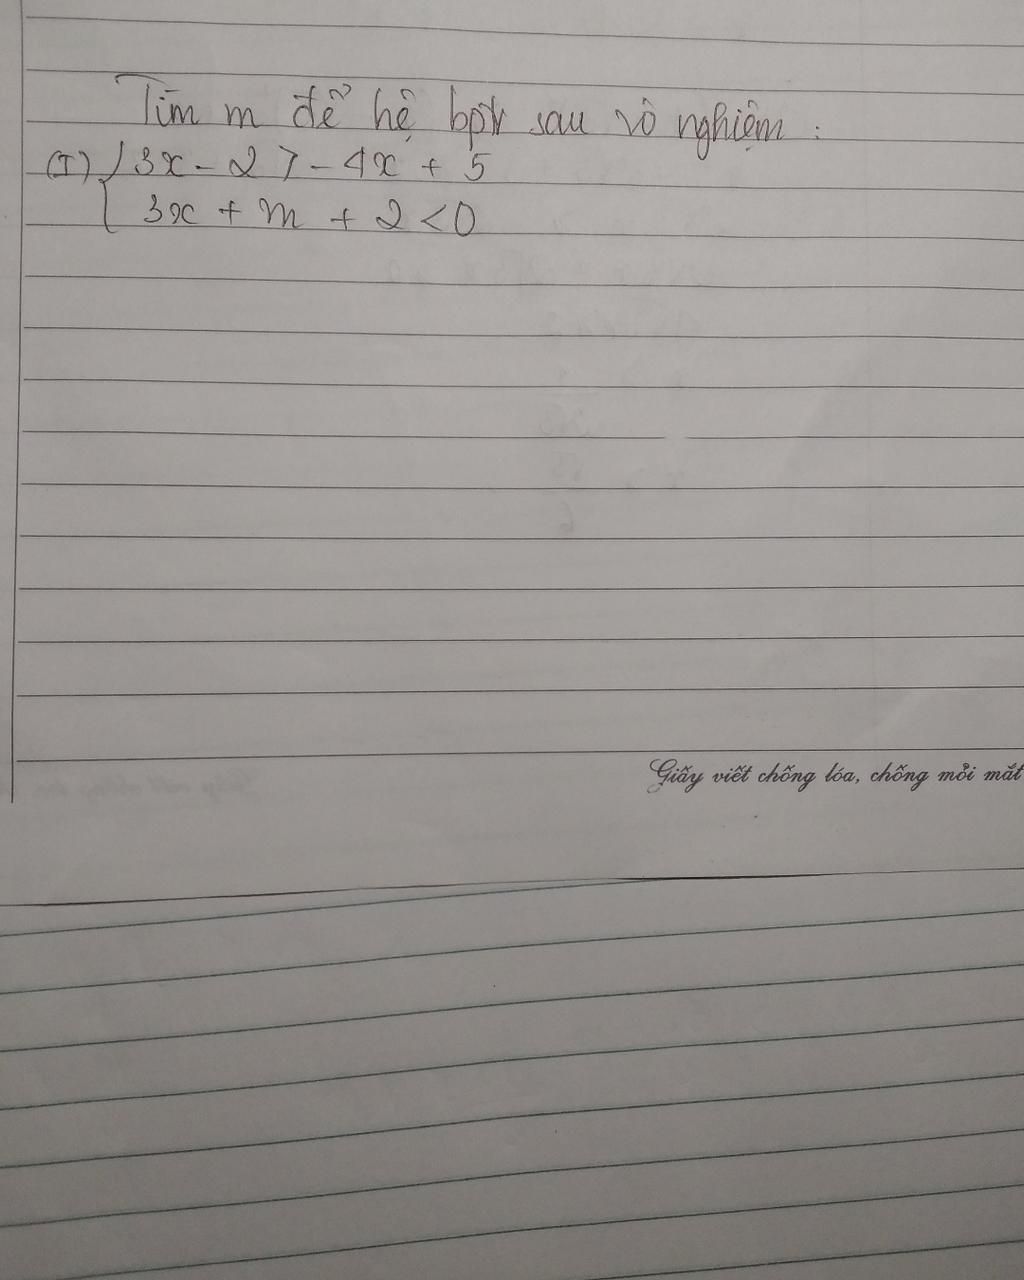 Tìm m để hệ bpt sau vô nghiệm :
(I) { 3x - 2 > - 4x + 5
3x + m + 2 < 0
Giấy viết chống lóa, chống mỏi mắt